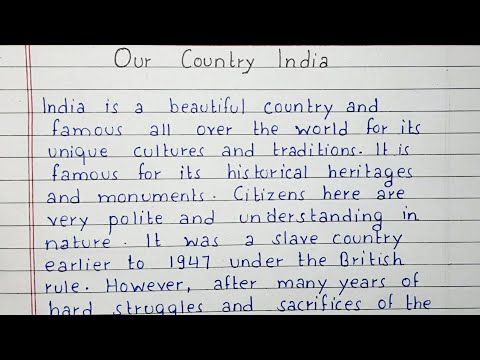 Our Country India
India is a beautiful country and
famous all over the world for its
unique cultures and traditions. It is
famous for its historical heritages
and monuments. Citizens here are
very polite and understanding in
nature. It was a slave country
earlier to 1947 under the British
rule. However, after many years of
hard struggles and sacrifices of the